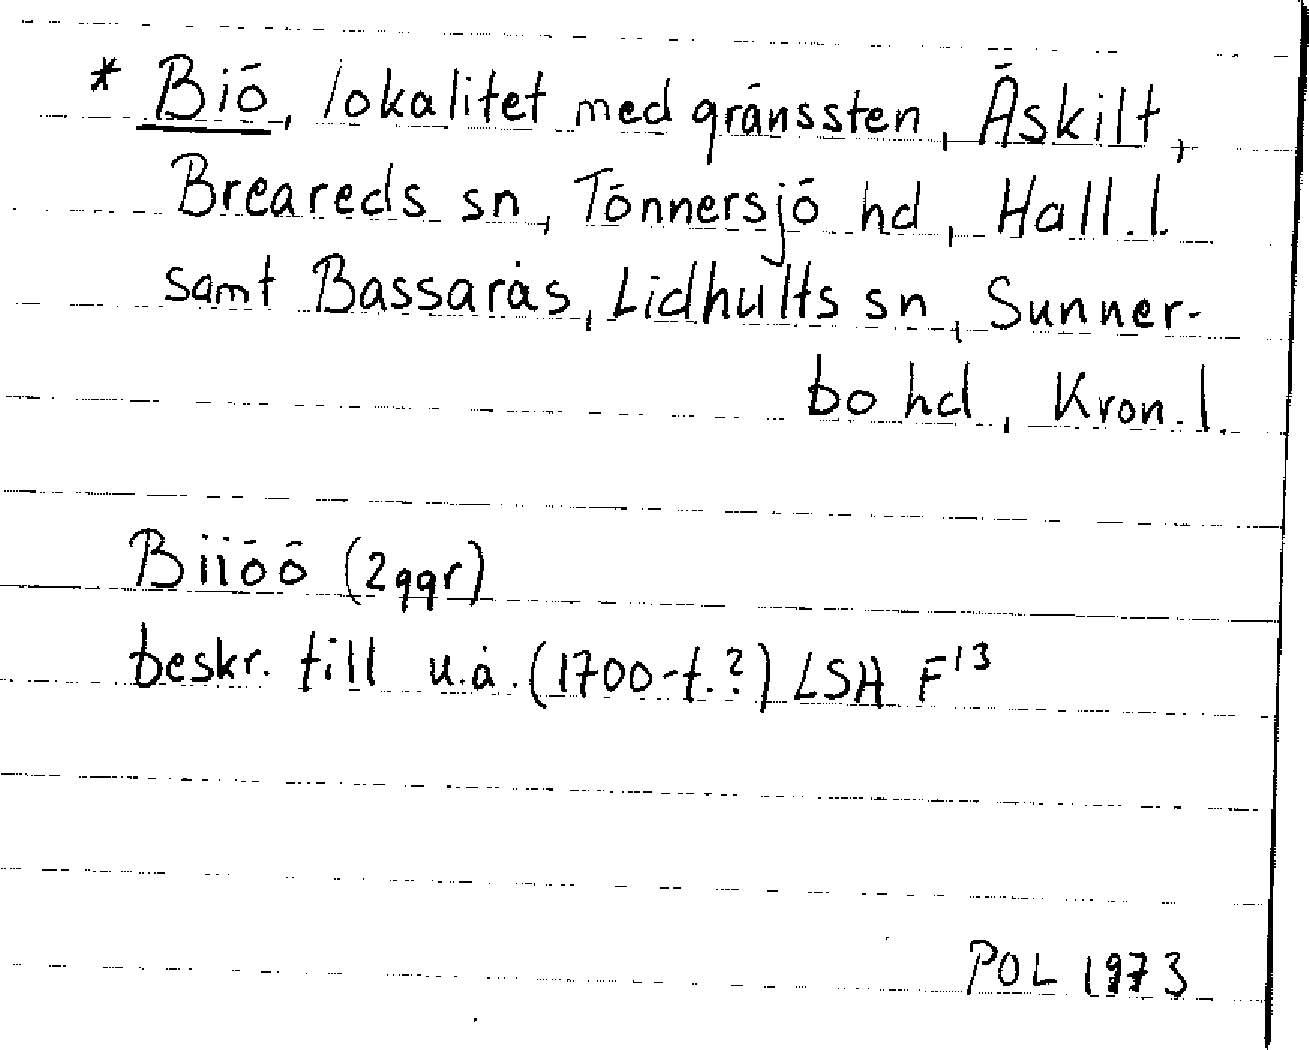 * Biö, lokalitet med gränssten, Äskilt,
Breareds sn, Tönnersjö hd, Hall. l.
samt Bassarås, Lidhults sn, Sunner-
bo hd, Kron. l.
Biiöö (2ggr)
beskr. till u.å. (1700-t.?) LSA F¹³
POL 1973